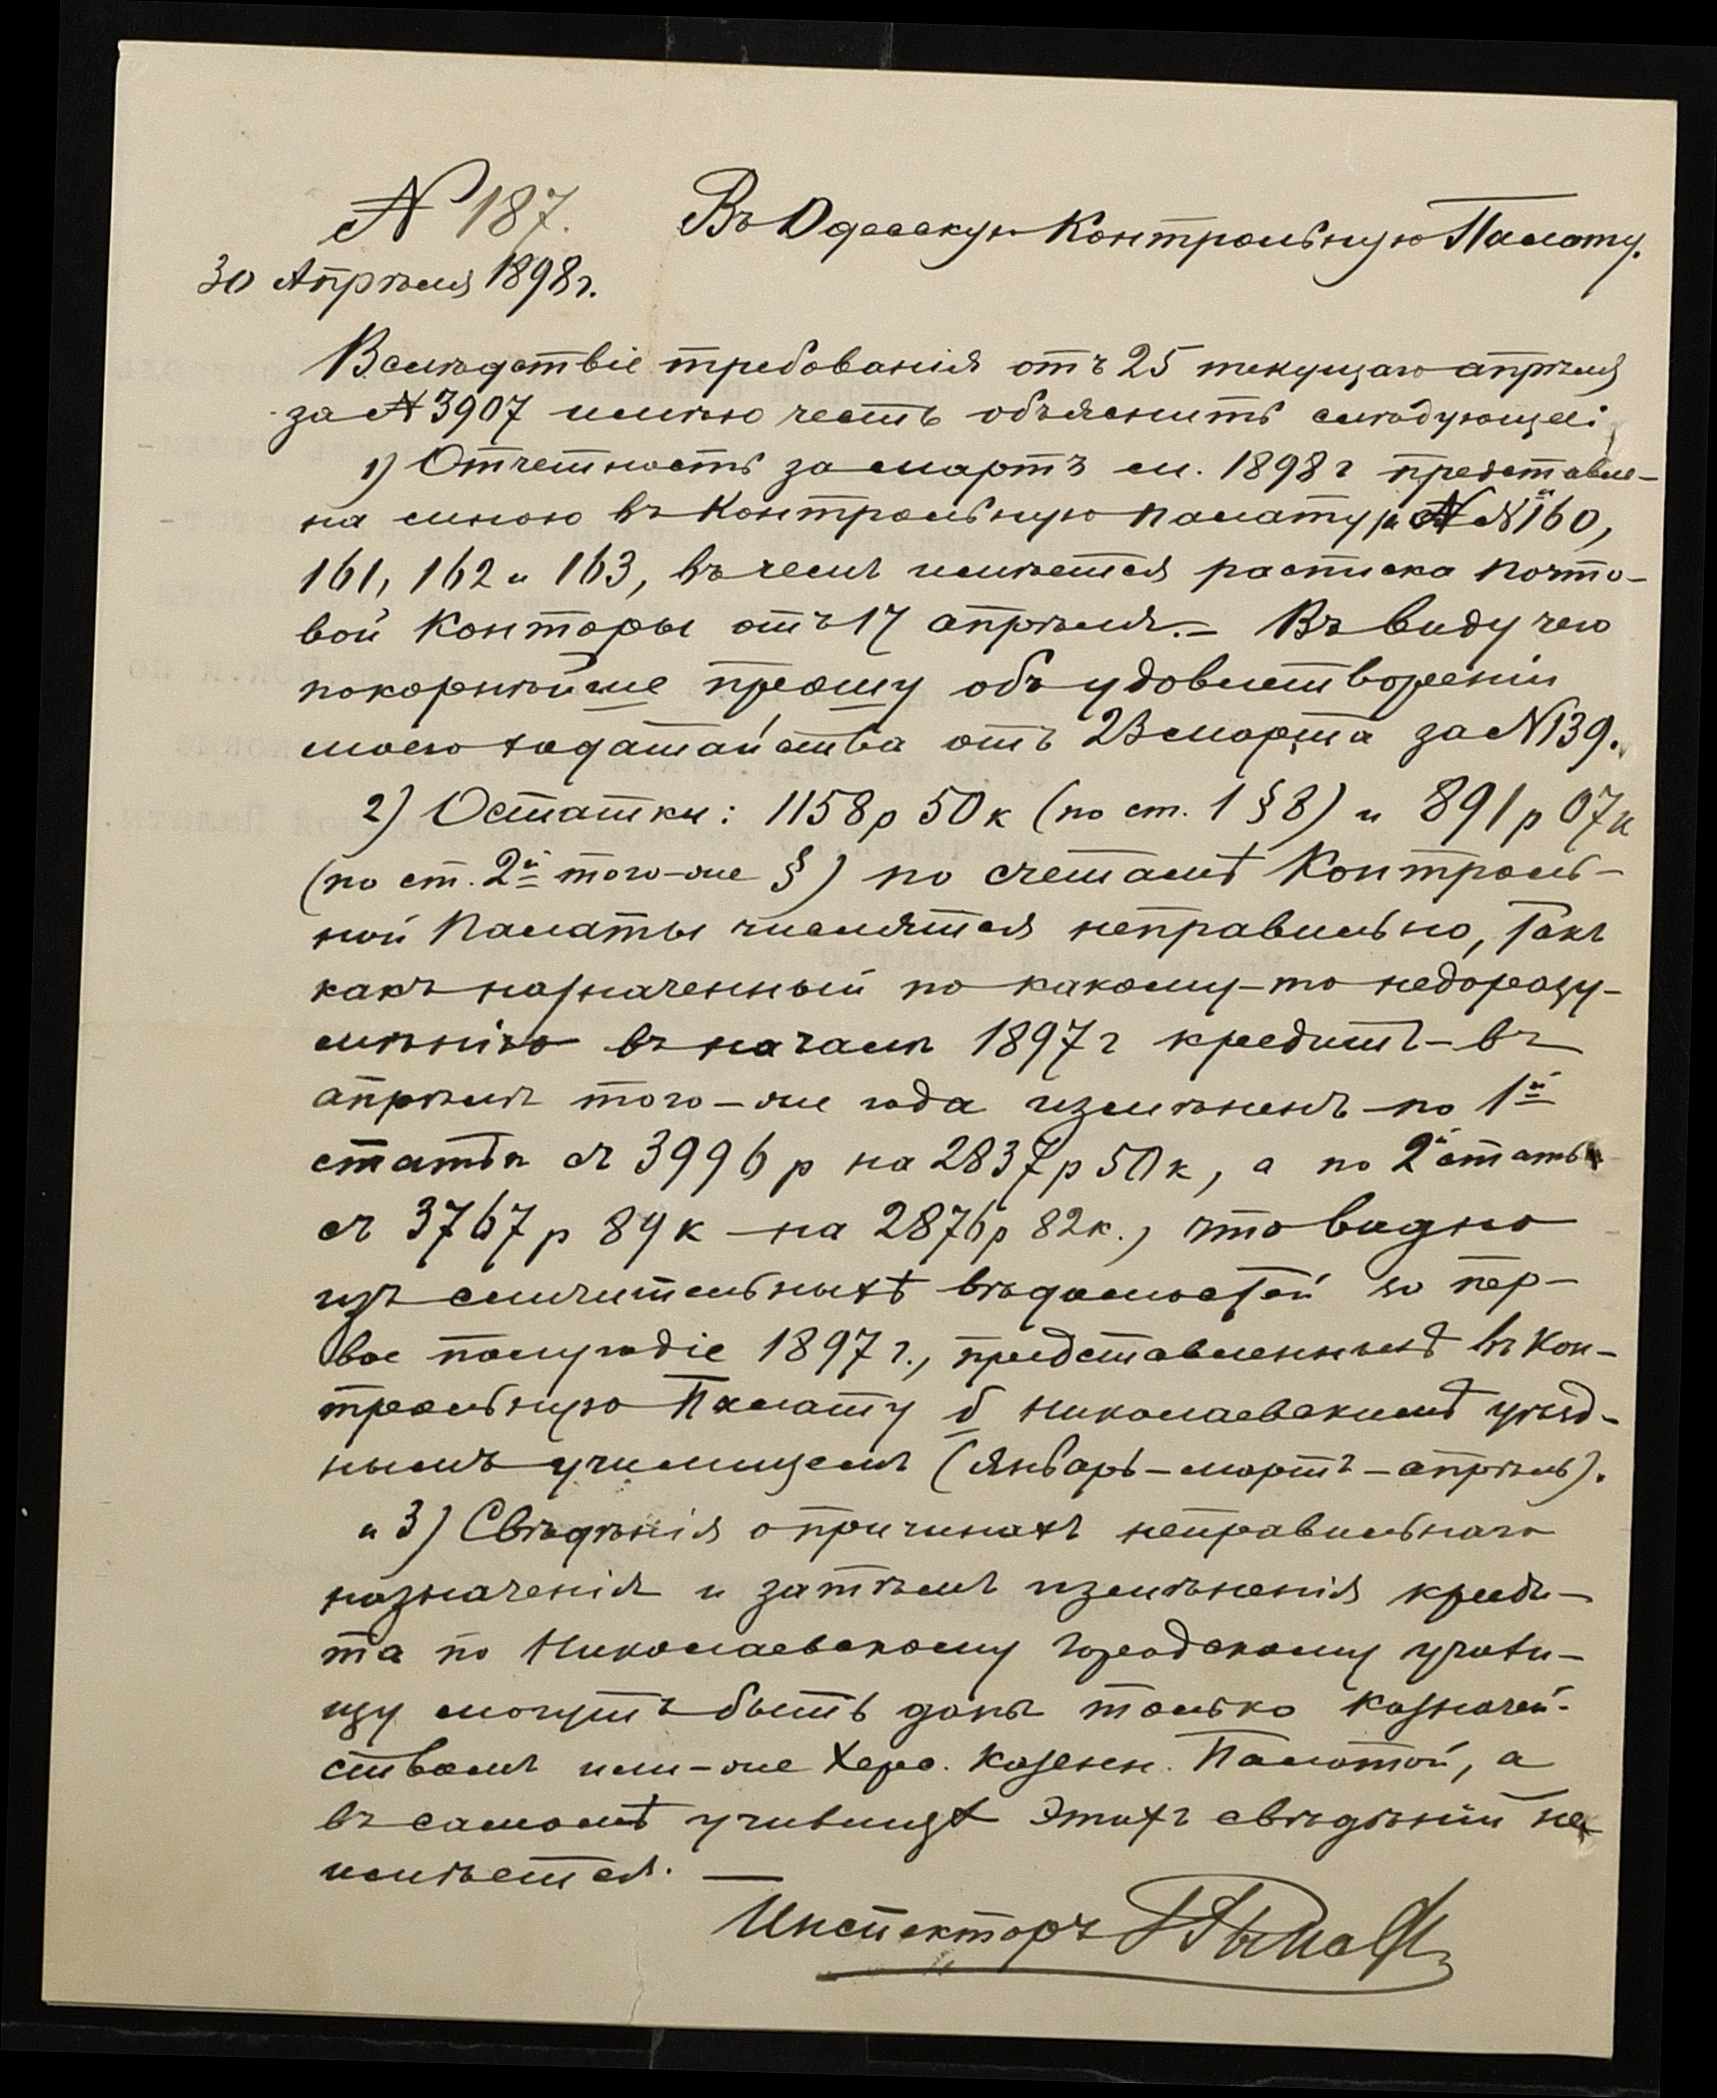 № 187.
Въ Одесскую Контрольную Палату.
30 Апрѣля 1898 г.
Вслѣдствіе требованія отъ 25 текущаго апрѣля
за № 3907 имѣю честь объяснить слѣдующее:
1) Отчетность за мартъ м. 1898 г представле-
на мною въ Контрольную палату за №№ 160,
161, 162 и 163, въ чемъ имѣется расписка почто-
вой Конторы отъ 17 апрѣля. – Въ виду чего
покорнѣйше прошу объ удовлетвореніи
моего ходатайства отъ 23 марта за № 139.
2) Остатки: 1158 р 50 к (по ст. 1 § 8) и 891 р 07 к
(по ст. 2й того-же §) по счетамъ Контроль-
ной Палаты числятся неправильно, такъ
какъ назначенный по какому-то недоразу-
мѣнію въ началѣ 1897 г кредитъ – въ
апрѣлѣ того-же года измѣненъ – по 1й
статьѣ съ 3996 р на 2837 р 50 к, а по 2й статьѣ
съ 3767 р 89 к – на 2876 р 82 к., что видно
изъ сличительныхъ вѣдомостей за пер-
вое полугодіе 1897 г., представленныхъ въ Кон-
трольную Палату б Николаевскимъ уѣзд-
нымъ училищемъ (Январь – мартъ – апрѣль).
и 3) Свѣдѣнія о причинахъ неправильнаго
назначенія и затѣмъ измѣненія креди-
та по Николаевскому Городскому учили-
щу могутъ быть даны только казначей-
ствомъ или-же Херс. Казенн. Палатой, а
въ самомъ училищѣ этихъ свѣдѣній не
имѣется. —
Инспекторъ